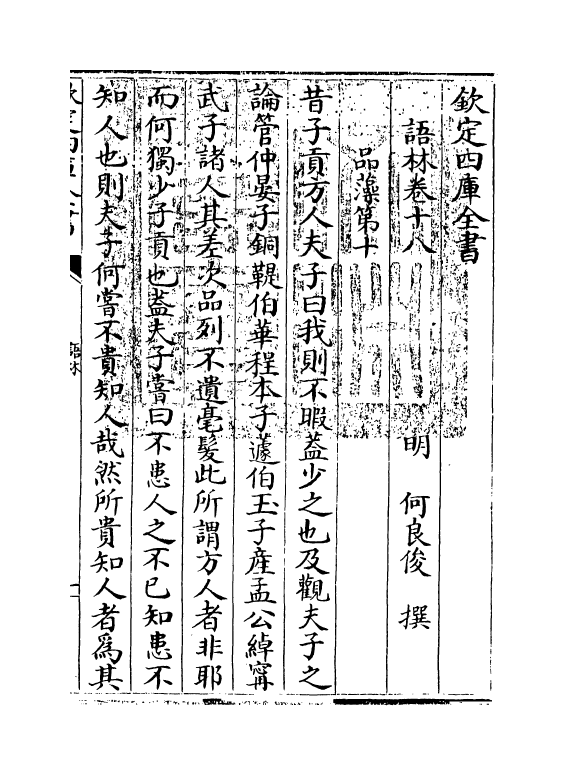 欽定四庫全書
語林卷十八
明 何良俊 撰
品藻第十
昔子貢方人夫子曰我則不暇葢少之也及觀夫子之
論管仲晏子銅鞮伯華程本子蘧伯玉子産孟公綽甯
武子諸人其差次品列不遺毫髮此所謂方人者非耶
而何獨少子貢也葢夫子嘗曰不患人之不已知患不
知人也則夫子何嘗不貴知人哉然所貴知人者爲其
語林